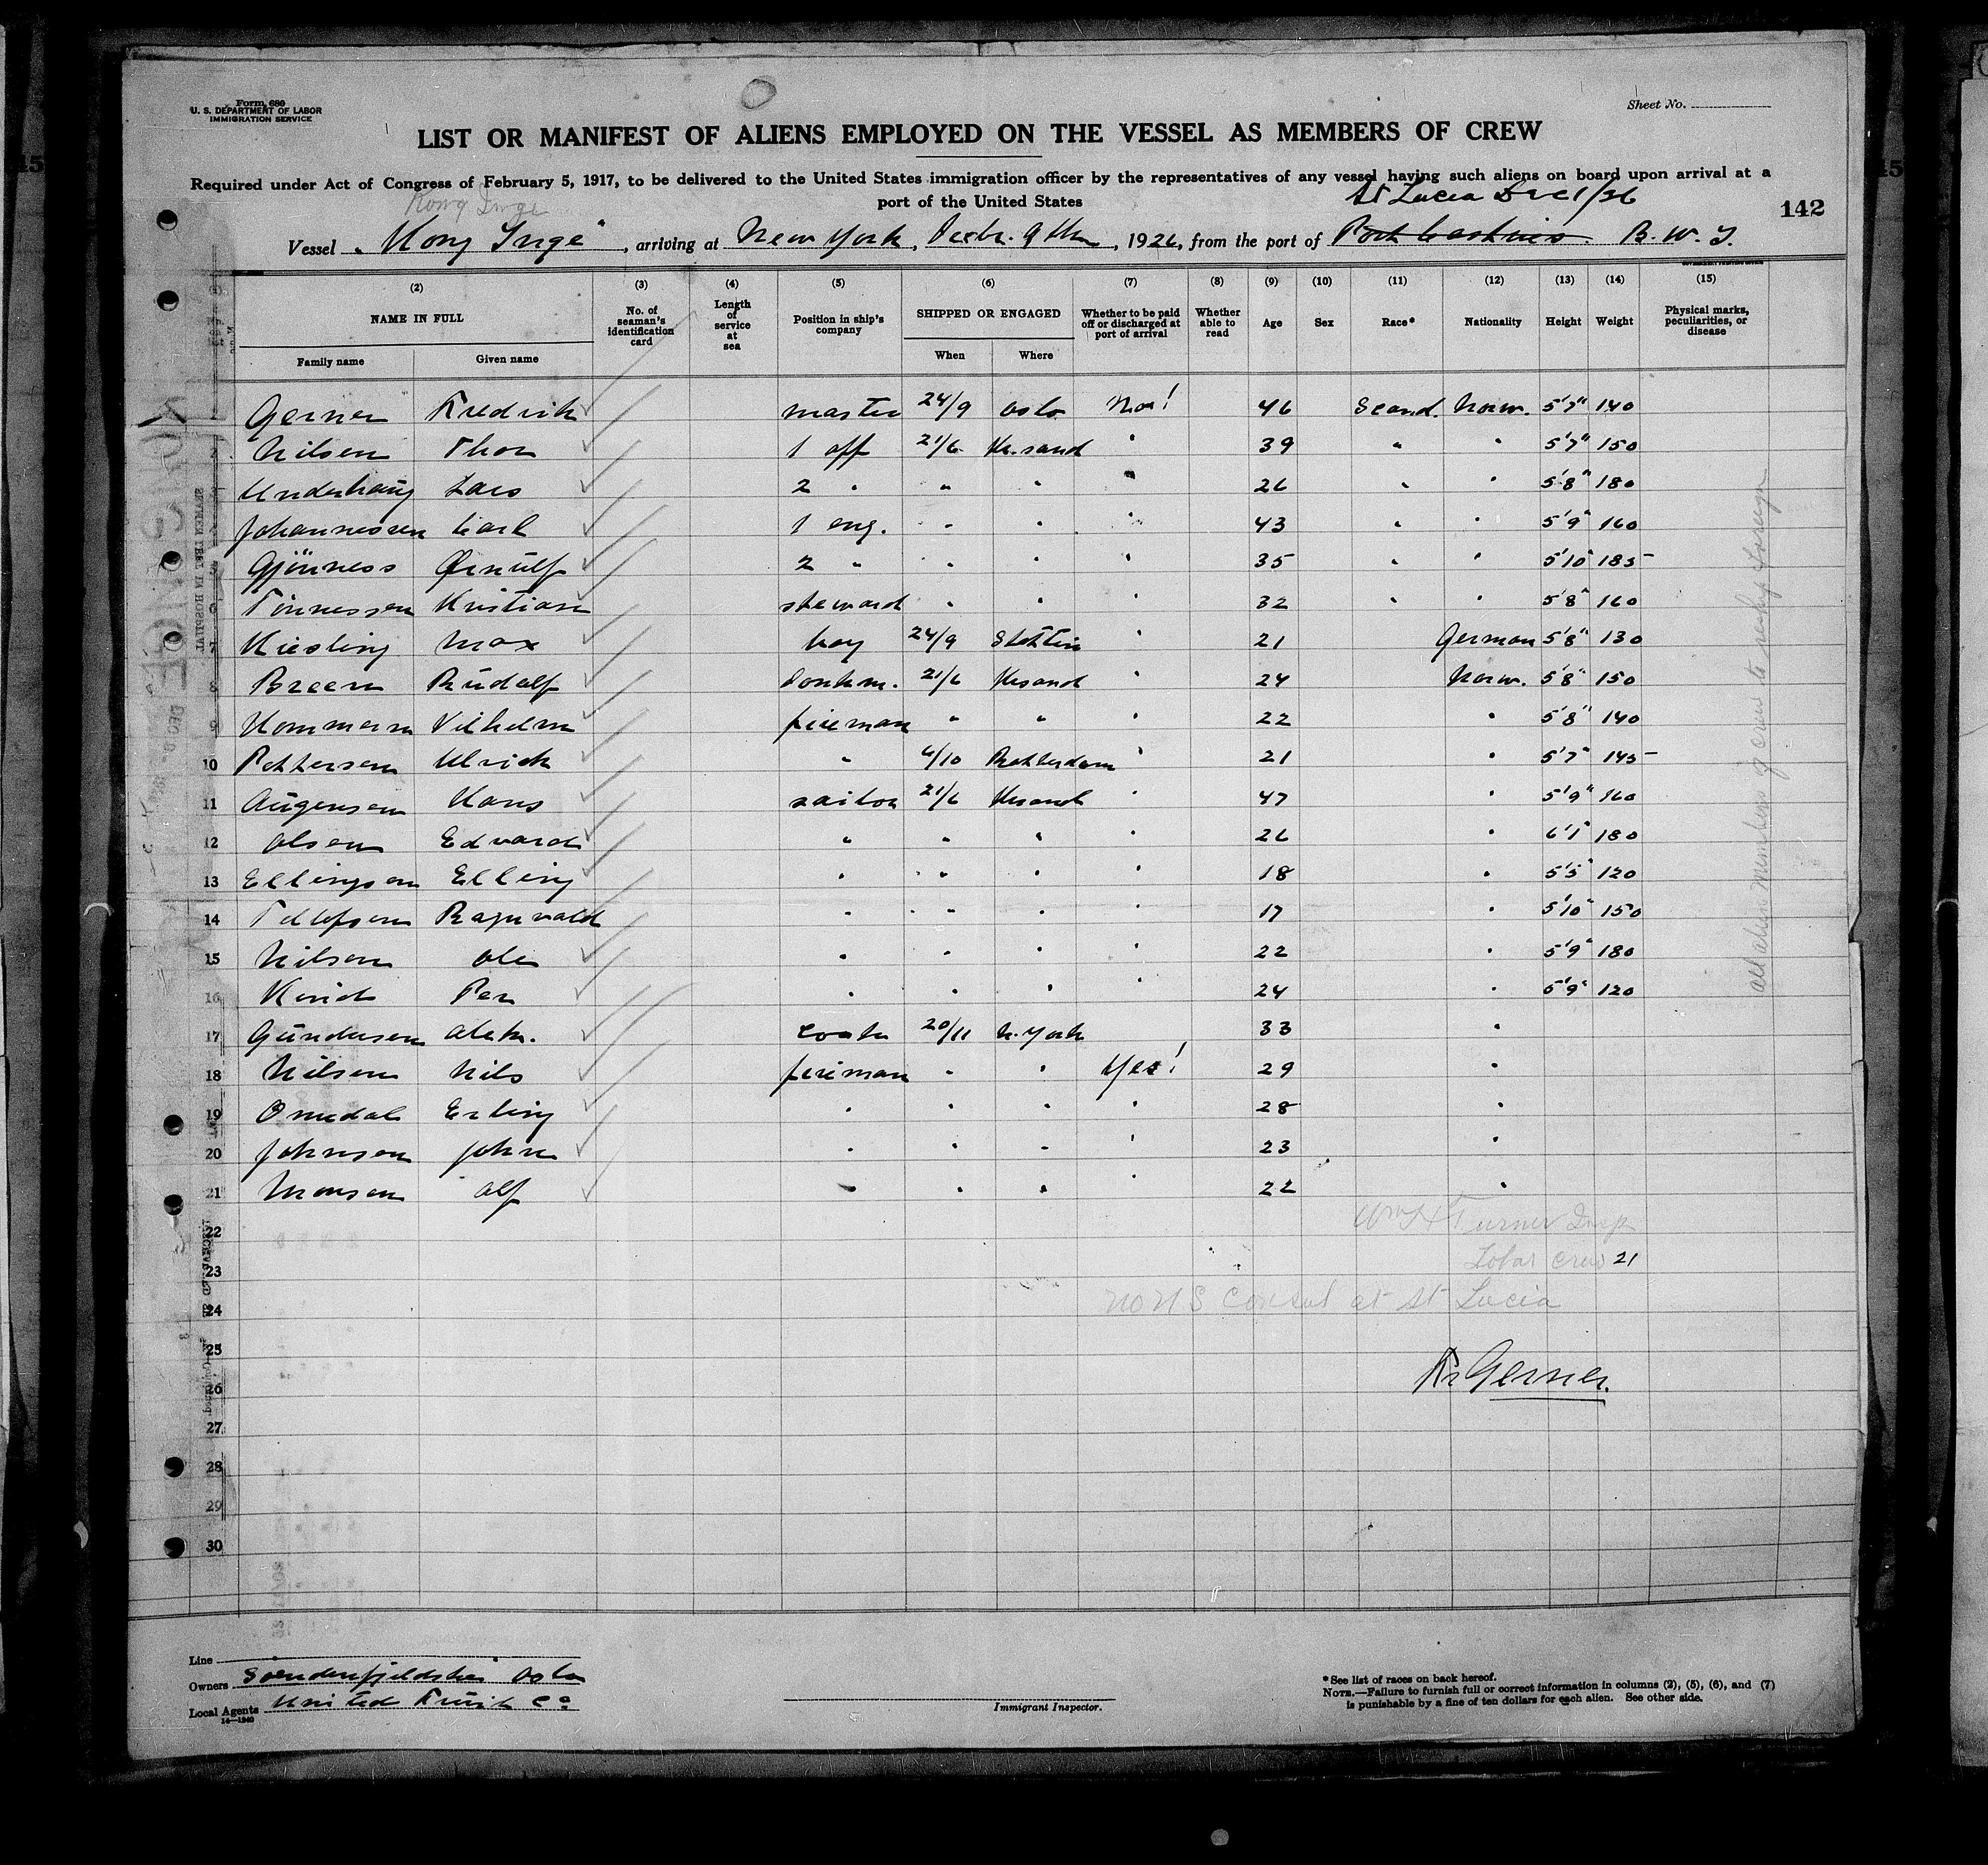 Form 680
U. S. DEPARTMENT OF LABOR
IMMIGRATION SERVICE
Sheet No.
LIST OR MANIFEST OF ALIENS EMPLOYED ON THE VESSEL AS MEMBERS OF CREW
Required under Act of Congress of February 5, 1917, to be delivered to the United States immigration officer by the representatives of any vessel having such aliens on board upon arrival at a
port of the United States
Kong Inge
St Lucia Dec 1/26
142
Vessel "Kong Inge", arriving at New York, Decbr. 9th, 1926, from the port of Port Castries. B. W. I.
(2) (3) (4) (5) (6) (7) (8) (9) (10) (11) (12) (13) (14) (15)
NAME IN FULL
Family name Given name
No. of seaman's identification card
Length of service at sea
Position in ship's company
SHIPPED OR ENGAGED
When Where
Whether to be paid off or discharged at port of arrival
Whether able to read
Age Sex Race* Nationality Height Weight
Physical marks, peculiarities, or disease
Gerner Fredrik master 24/9 Oslo No! 46 Scand. Norw. 5'7" 140
2 Nilsen Thor 1 off 21/6 Kr.sand " 39 " " 5'7" 150
Underhaug Lars 2 " " " " 26 " " 5'8" 180
Johannessen Carl 1 eng. " " " 43 " " 5'9" 160
Gjönness Ørnulf 2 " " " " 35 " " 5'10" 185
6 Tönnessen Kristian steward " " " 32 " " 5'8" 160
7 Kiesling Max boy 24/9 Stettin " 21 German 5'8" 130
8 Breen Rudolf donkm. 21/6 Krsand " 24 Norw. 5'8" 150
9 Hommern Vilhelm fireman " " " 22 " 5'8" 140
10 Pettersen Ulrich " 6/10 Rotterdam " 21 " 5'7" 145
11 Augensen Hans sailor 21/6 Krsand " 47 " 5'9" 160
12 Olsen Edvard " " " " 26 " 6'1" 180
13 Ellingsen Elling " " " " 18 " 5'5" 120
14 Tellefsen Ragnvald " " " " 17 " 5'10" 150
15 Nilsen Ole " " " " 22 " 5'9" 180
16 Per " " " " 24 " 5'9" 120
17 Gundersen Alek. cook 20/11 N. York 33 "
18 Nilsen Nils fireman " " Yes! 29 "
19 Omdal Erling " " " " 28 "
20 Johnsen John " " " " 23 "
21 Monsen Alf " " " " 22 "
22
23
24
25
26
27
28
29
30
Wm H Turner Insp
Total crew 21
No U S Consul at St Lucia
Fr Gerner.
all alien members of crew
Line
Owners Soendenfjeldske Oslo
Local Agents United Fruit Co
14—1240
Immigrant Inspector.
*See list of races on back hereof.
NOTE.—Failure to furnish full or correct information in columns (2), (5), (6), and (7)
is punishable by a fine of ten dollars for each alien. See other side.